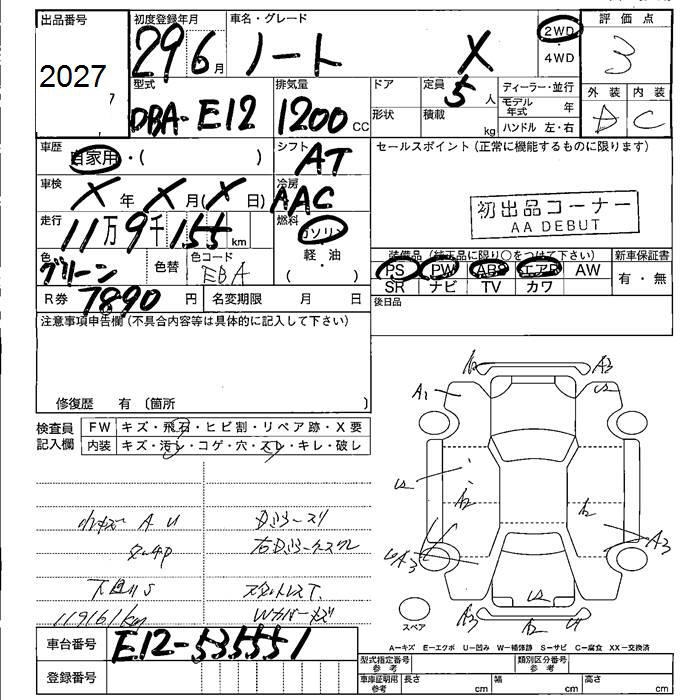 出品番号 初度登録年月 車名・グレード 評価点
2027
29 6月 ノート X 2WD ・ 4WD 3
型式 排気量 ドア 定員 ディーラー・並行 外装 内装
DBA-E12 1200 CC 形状 5人 積載 kg モデル年式 年 ハンドル 左・右 D C
車歴 自家用・( ) シフト AT セールスポイント(正常に機能するものに限ります)
車検 X年 X月(X日) 冷房 AAC
初出品コーナー
AA DEBUT
走行 11万9千155km 燃料 ガソリン 軽・油 ( )
装備品(純正品に限り○をつけて下さい) 新車保証書
色 グリーン 色替 色コード EBA
PS PW ABS エアB AW 有・無
SR ナビ TV カワ
R券 7890円 名変期限 月 日 後日品
注意事項申告欄(不具合内容等は具体的に記入して下さい)
修復歴 有 〔箇所 〕
検査員記入欄 FW キズ・飛石・ヒビ割・リペア跡・X要
内装 キズ・汚レ・コゲ・穴・スレ・キレ・破レ
A1 A3 U
小キズ A U
下回りS
119161km
Wカバーキズ
A3 A2 U
スペア
車台番号 E12-535551
A=キズ E=エクボ U=凹み W=補修跡 S=サビ C=腐食 XX=交換済
登録番号
型式指定番号 参考 類別区分番号 参考
車庫証明用 参考 長さ cm 幅 cm 高さ cm